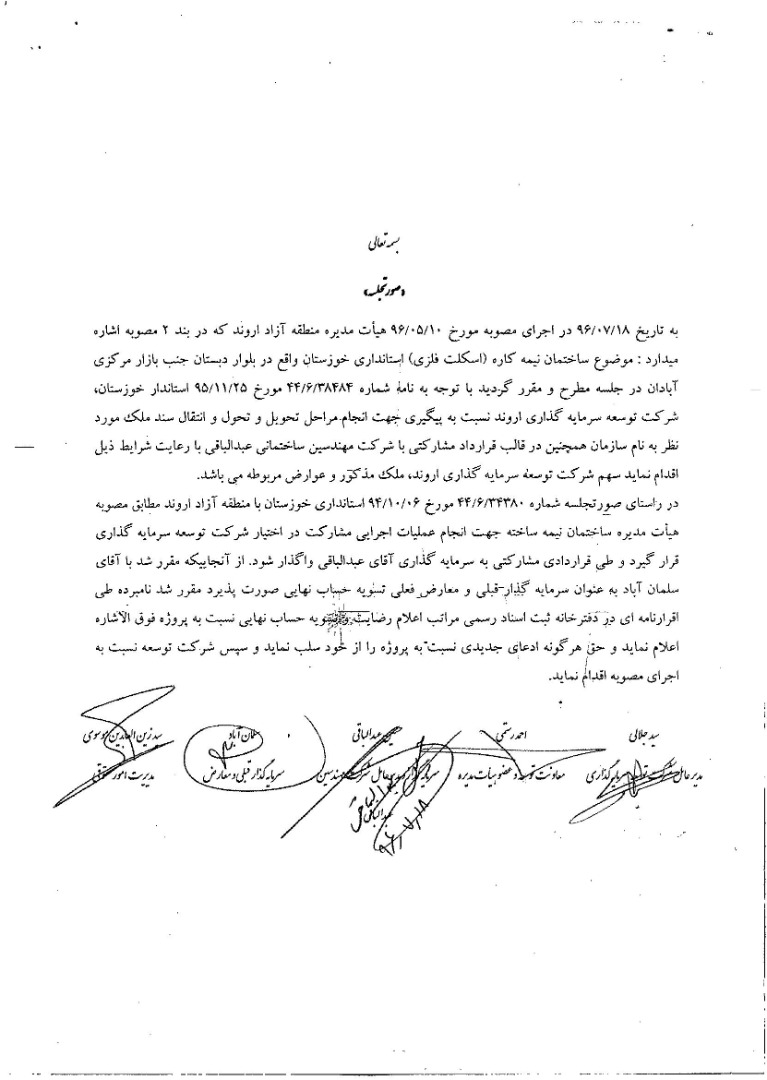 بسمه تعالی
«صورتجلسه»
به تاریخ ۹۶/۰۷/۱۸ در اجرای مصوبه مورخ ۹۶/۰۵/۱۰ هیأت مدیره منطقه آزاد اروند که در بند ۲ مصوبه اشاره
میدارد : موضوع ساختمان نیمه کاره (اسکلت فلزی) استانداری خوزستان واقع در بلوار دبستان جنب بازار مرکزی
آبادان در جلسه مطرح و مقرر گردید با توجه به نامه شماره ۴۴/۶/۳۸۴۸۴ مورخ ۹۵/۱۱/۲۵ استاندار خوزستان،
شرکت توسعه سرمایه گذاری اروند نسبت به پیگیری جهت انجام مراحل تحویل و تحول و انتقال سند ملک مورد
نظر به نام سازمان همچنین در قالب قرارداد مشارکتی با شرکت مهندسین ساختمانی عبدالباقی با رعایت شرایط ذیل
اقدام نماید سهم شرکت توسعه سرمایه گذاری اروند، ملک مذکور و عوارض مربوطه می باشد.
در راستای صورتجلسه شماره ۴۴/۶/۳۴۳۸۰ مورخ ۹۴/۱۰/۰۶ استانداری خوزستان با منطقه آزاد اروند مطابق مصوبه
هیأت مدیره ساختمان نیمه ساخته جهت انجام عملیات اجرایی مشارکت در اختیار شرکت توسعه سرمایه گذاری
قرار گیرد و طی قراردادی مشارکتی به سرمایه گذاری آقای عبدالباقی واگذار شود. از آنجاییکه مقرر شد با آقای
سلمان آباد به عنوان سرمایه گذار قبلی و معارض فعلی تسویه حساب نهایی صورت پذیرد مقرر شد نامبرده طی
اقرارنامه ای در دفترخانه ثبت اسناد رسمی مراتب اعلام رضایت و تسویه حساب نهایی نسبت به پروژه فوق الاشاره
اعلام نماید و حق هرگونه ادعای جدیدی نسبت به پروژه را از خود سلب نماید و سپس شرکت توسعه نسبت به
اجرای مصوبه اقدام نماید.
سید جلالی احمد رستمی حسین عبدالباقی سلمان آباد سید زین العابدین موسوی
مدیر عامل شرکت توسعه سرمایه گذاری معاونت توسعه و عضو هیأت مدیره سرمایه گذار و مدیر عامل شرکت مهندسین سرمایه گذار قبلی و معارض مدیریت امور حقوقی
عبدالباقی
۹۶/۷/۱۸